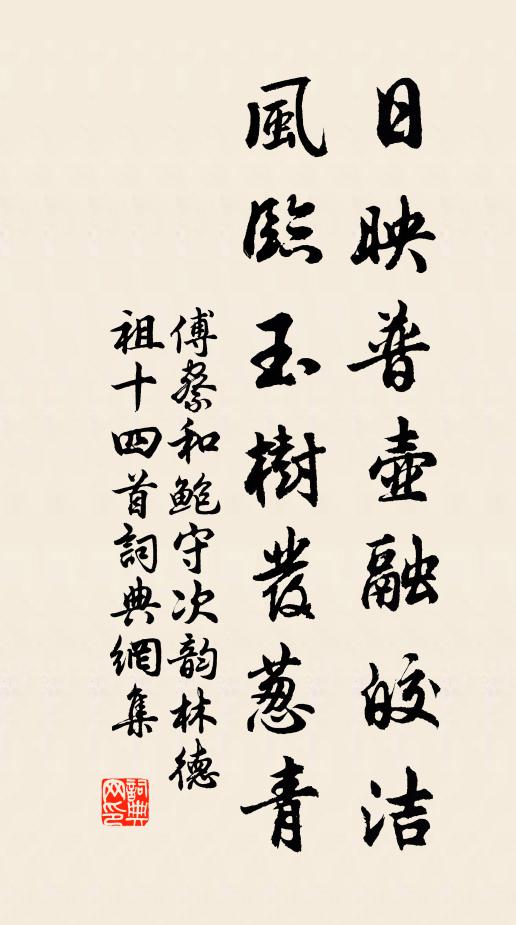 日映普壺融皎洁
風臨玉樹發葱青
傅察和鮑守次韵林德
祖十四首詞典網集
詞典
网印